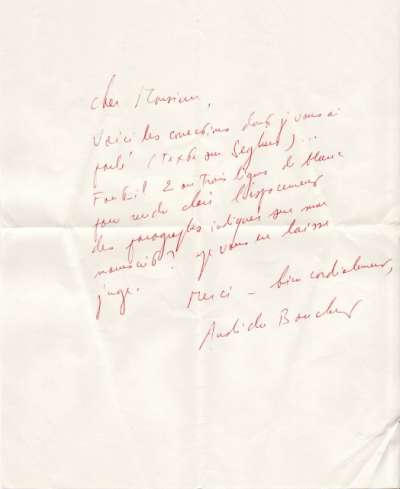 Cher Monsieur,
Voici les corrections dont je vous ai
parlé (Texte sur Seghers)...
Faut-il 2 ou Trois lignes de blanc
pour rendre clair l'espacement
des paragraphes indiqués sur mon
manuscrit? Je vous en laisse
juge.
Merci - bien cordialement,
André du Bouchet